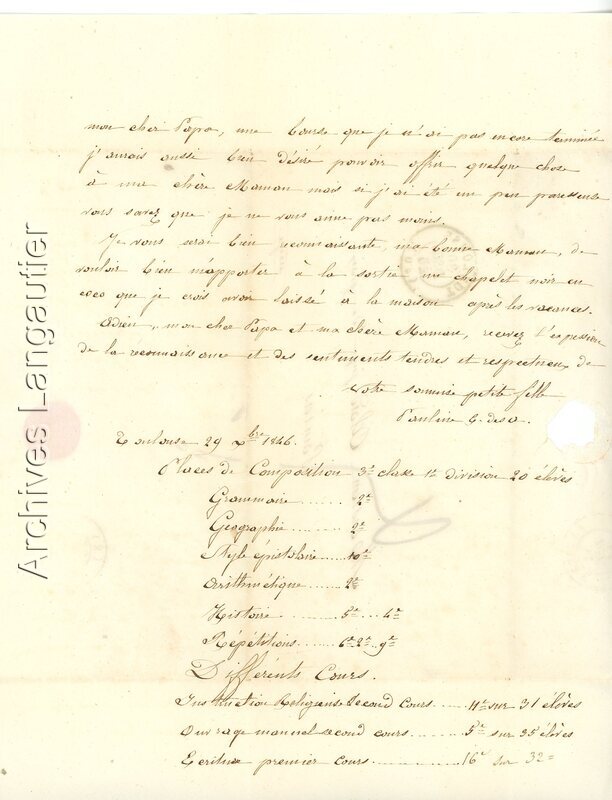 mon cher Papa, une bourse que je n'ai pas encore terminée
j'aurois aussi bien désiré pouvoir offrir quelque chose
à ma chère Maman mais si j'ai été un peu paresseuse
vous savez que je ne vous aime pas moins.
Je vous serai bien reconnaissante, ma bonne Maman, de
vouloir bien m'apporter à la sortie un chapelet noir en
coco que je crois avoir laissé à la maison après les vacances.
Adieu, mon cher Papa et ma chère Maman, recevez l'expression
de la reconnaissance et des sentiments tendres et respectueux de
votre soumise petite fille
Pauline G.
Toulouse 29 Xbre 1846.
Places de Composition 3e classe 1e division 20 élèves
Grammaire ....... 2e
Geographie ...... 2e
Style épistolaire .... 10e
Arithmétique ...... 2e
Histoire ........... 5e ... 4e
Répétitions ...... 6e 2e 9e
Différents Cours.
Instruction Religieuse Second Cours .... 4e sur 31 élèves
Ouvrage manuel second cours ....... 5e sur 35 élèves
Ecriture premier cours ........... 16e sur 32
Archives Langautier